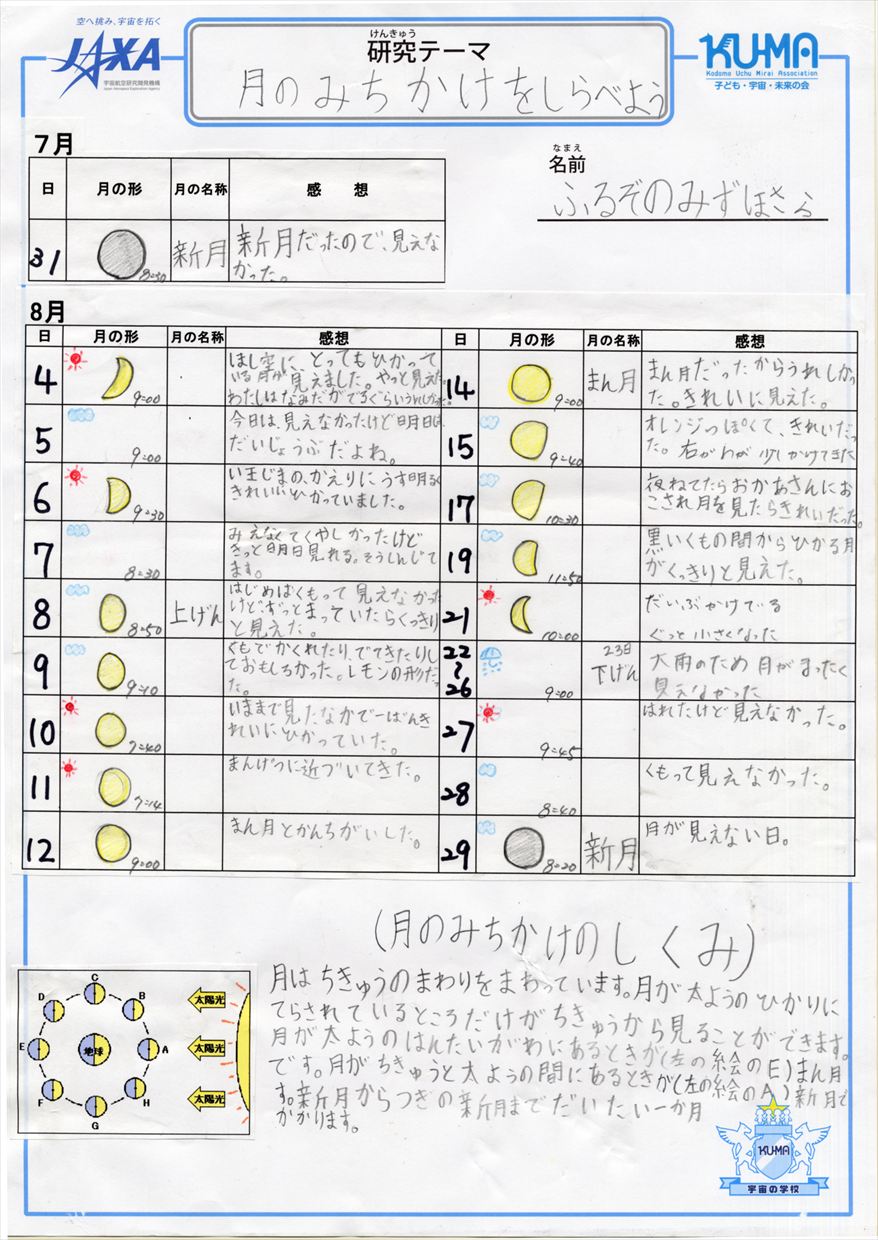 空へ挑み、宇宙を拓く
JAXA
宇宙航空研究開発機構
Japan Aerospace Exploration Agency
けんきゅう
研究テーマ
月のみちかけをしらべよう
KU-MA
Kodomo Uchu Mirai Association
子ども・宇宙・未来の会
7月
日 月の形 月の名称 感想
31 8=30 新月 新月だったので、見えな
かった。
なまえ
名前
ふるぞのみずほさら
8月
日 月の形 月の名称 感想
4 9=00 ほし空に、とってもひかって
いる月が見えました。やっと見えた。
わたしはなみだがでるぐらいうれしかった。
5 9=00 今日は、見えなかったけど明日は、
だいじょうぶだよね。
6 9=30 い王じまの、かえりにうす明るく
きれいにひかっていました。
7 8=30 みえなくてくやしかったけど
きっと明日見れる。そうしんじて
ます。
8 8=50 上げん はじめはくもって見えなかった
けど、ずっとまっていたらくっきり
と見えた。
9 9=10 くもでかくれたり、でてきたりし
ておもしろかった。レモンの形だっ
た。
10 7=40 いままで見たなかで一ばんき
れいにひかっていた。
11 7=14 まんげつに近づいてきた。
12 9=00 まん月とかんちがいした。
日 月の形 月の名称 感想
14 9=00 まん月 まん月だったからうれしかっ
た。きれいに見えた。
15 9=40 オレンジっぽくて、きれいだっ
た。右がわが少しかけてきた
17 10=30 夜ねてたらおかあさんにお
こされ月を見たらきれいだった。
19 11=50 黒いくもの間からひかる月
がくっきりと見えた。
21 10=00 だいぶかけている
ぐっと小さくなった
22〜26 9=00 23日
下げん 大雨のため月がまったく
見えなかった
27 9=45 はれたけど見えなかった。
28 8=40 くもって見えなかった。
29 8=20 新月 月が見えない日。
(月のみちかけのしくみ)
月はちきゅうのまわりをまわっています。月が太ようのひかりに
てらされているところだけがちきゅうから見ることができます。
月が太ようのはんたいがわにあるときが(左の絵のE)まん月
です。月がちきゅうと太ようの間にあるときが(左の絵のA)新月で
す。新月からつぎの新月までだいたい一か月
かかります。
C
D
B
太陽光
E
地球
A
太陽光
F
H
太陽光
G
KU-MA
宇宙の学校